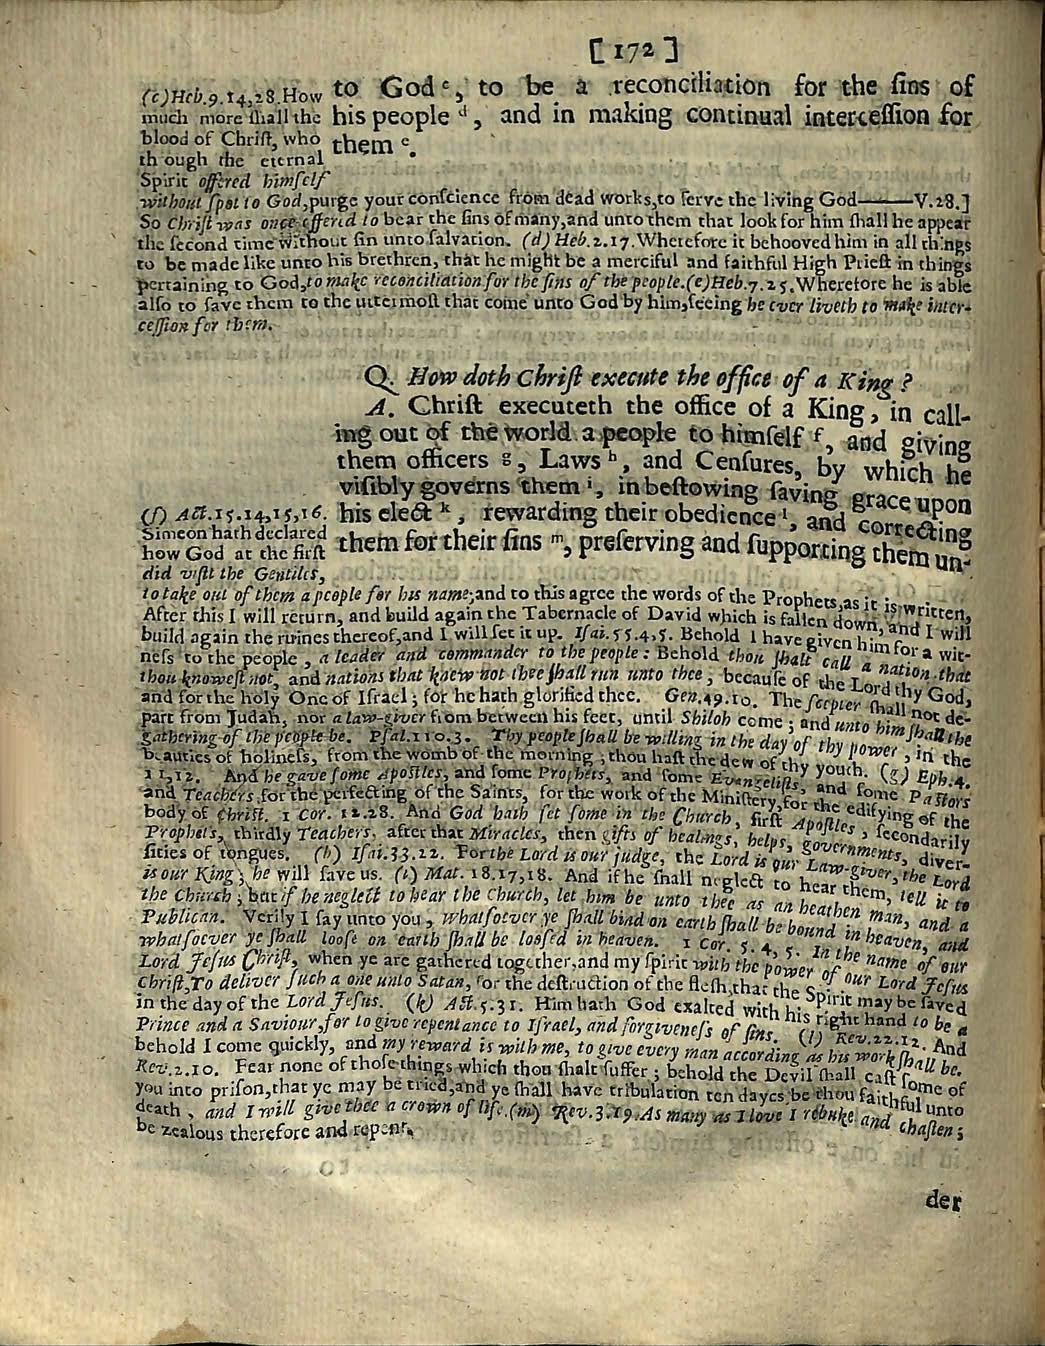 [ 172 ]
to God ᶜ, to be a reconciliation for the ſins of
his people ᵈ, and in making continual interceſſion for
them ᵉ.
(c) Heb. 9. 14, 28. How
much more ſhall the
blood of Chriſt, who
th ough the eternal
Spirit offered himſelf
without ſpot to God, purge your conſcience from dead works, to ſerve the living God——V. 28. ]
So Chriſt was once offered to bear the ſins of many, and unto them that look for him ſhall he appear
the ſecond time without ſin unto ſalvation. (d) Heb. 2. 17. Wherefore it behooved him in all things
to be made like unto his brethren, that he might be a merciful and faithful High Prieſt in things
pertaining to God, to make reconciliation for the ſins of the people. (e) Heb. 7. 25. Wherefore he is able
alſo to ſave them to the uttermoſt that come unto God by him, ſeeing he ever liveth to make inter-
ceſſion for them.
Q. How doth Chriſt execute the office of a King ?
A. Chriſt executeth the office of a King, in call-
ing out of the world a people to himſelf ᶠ, and giving
them officers ᵍ, Laws ʰ, and Cenſures, by which he
viſibly governs them ⁱ, in beſtowing ſaving grace upon
his elect ᵏ, rewarding their obedience ˡ, and correcting
them for their ſins ᵐ, preſerving and ſupporting them un-
(f) Act. 15. 14, 15, 16.
Simeon hath declared
how God at the firſt
did viſit the Gentiles,
to take out of them a people for his name; and to this agree the words of the Prophets, as it is written,
After this I will return, and build again the Tabernacle of David which is fallen down, and I will
build again the ruines thereof, and I will ſet it up. Iſai. 55. 4, 5. Behold I have given him for a wit-
neſs to the people, a leader and commander to the people : Behold thou ſhalt call a nation that
thou knoweſt not, and nations that knew not thee ſhall run unto thee, becauſe of the Lord thy God,
and for the holy One of Iſrael ; for he hath glorified thee. Gen. 49. 10. The ſcepter ſhall not de-
part from Judah, nor a law-giver from between his feet, until Shiloh come ; and unto him ſhall the
gathering of the people be. Pſal. 110. 3. Thy people ſhall be willing in the day of thy power, in the
beauties of holineſs, from the womb of the morning ; thou haſt the dew of thy youth. (g) Eph. 4.
11, 12. And he gave ſome Apoſtles, and ſome Prophets, and ſome Evangeliſts, and ſome Paſtors
and Teachers, for the perfecting of the Saints, for the work of the Miniſtery, for the edifying of the
body of Chriſt. 1 Cor. 12. 28. And God hath ſet ſome in the Church, firſt Apoſtles, ſecondarily
Prophets, thirdly Teachers, after that Miracles, then gifts of healings, helps, governments, diver-
ſities of tongues. (h) Iſai. 33. 22. For the Lord is our judge, the Lord is our Law-giver, the Lord
is our King ; he will ſave us. (i) Mat. 18. 17, 18. And if he ſhall neglect to hear them, tell it to
the Church ; but if he neglect to hear the Church, let him be unto thee as an heathen man, and a
Publican. Verily I ſay unto you, whatſoever ye ſhall bind on earth ſhall be bound in heaven, and
whatſoever ye ſhall looſe on earth ſhall be looſed in heaven. 1 Cor. 5. 4, 5. In the name of our
Lord Jeſus Chriſt, when ye are gathered together, and my ſpirit with the power of our Lord Jeſus
Chriſt, To deliver ſuch a one unto Satan, for the deſtruction of the fleſh, that the Spirit may be ſaved
in the day of the Lord Jeſus. (k) Act. 5. 31. Him hath God exalted with his right hand to be a
Prince and a Saviour, for to give repentance to Iſrael, and forgiveneſs of ſins. (l) Rev. 22. 12. And
behold I come quickly, and my reward is with me, to give every man according as his work ſhall be.
Rev. 2. 10. Fear none of thoſe things which thou ſhalt ſuffer ; behold the Devil ſhall caſt ſome of
you into priſon, that ye may be tried, and ye ſhall have tribulation ten dayes, be thou faithful unto
death, and I will give thee a crown of life. (m) Rev. 3. 19. As many as I love I rebuke and chaſten ;
be zealous therefore and repent.
der